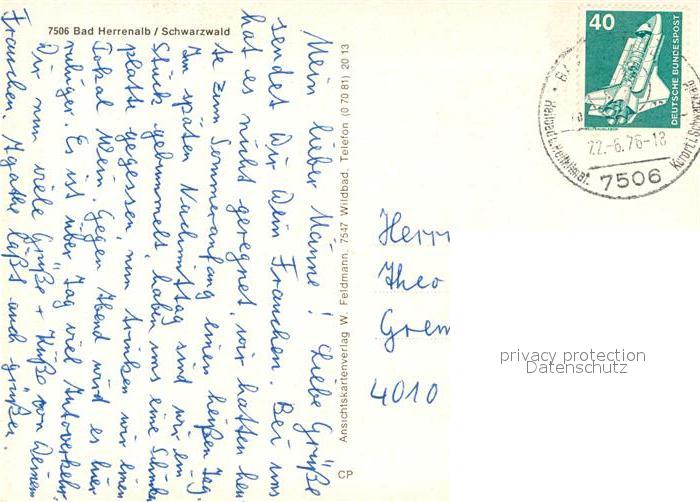 7506 Bad Herrenalb / Schwarzwald
Mein lieber Männe! Liebe Grüße
sendet Dir Dein Frauchen. Bei uns
hat es nicht geregnet, wir hatten heu
te zum Sommeranfang einen heißen Tag.
Im späten Nachmittag sind wir ein
Stück gebummelt, haben uns eine Schinken
platte gegessen, nun trinken wir einen
Tokal Wein. Gegen Abend wird es hier
ruhiger. Es ist über Tag viel Autoverkehr.
Dir nun viele Grüße + Küße von Deinem
Frauchen. Agathe läßt auch grüßen.
Ansichtskartenverlag W. Feldmann, 7547 Wildbad, Telefon (0 70 81) 20 13
CP
40
DEUTSCHE BUNDESPOST
22.-6.76-18
7506
Herrn
Theo
Grem
4010
privacy protection
Datenschutz